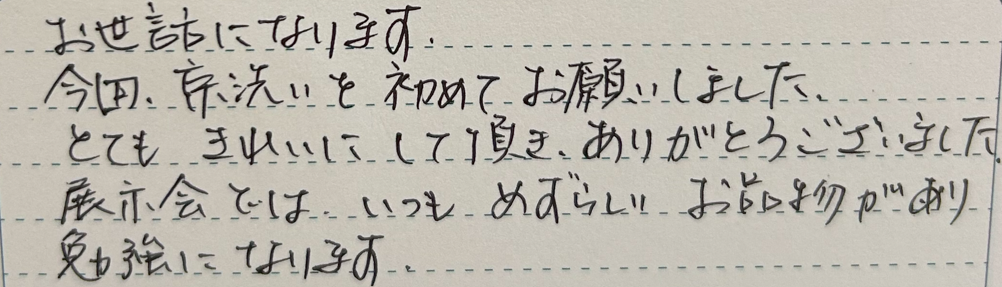 お世話になります.
今回、京洗いを初めてお願いしました、
とてもきれいにして頂き、ありがとうございました
展示会では、いつもめずらしいお品物があり
勉強になります.